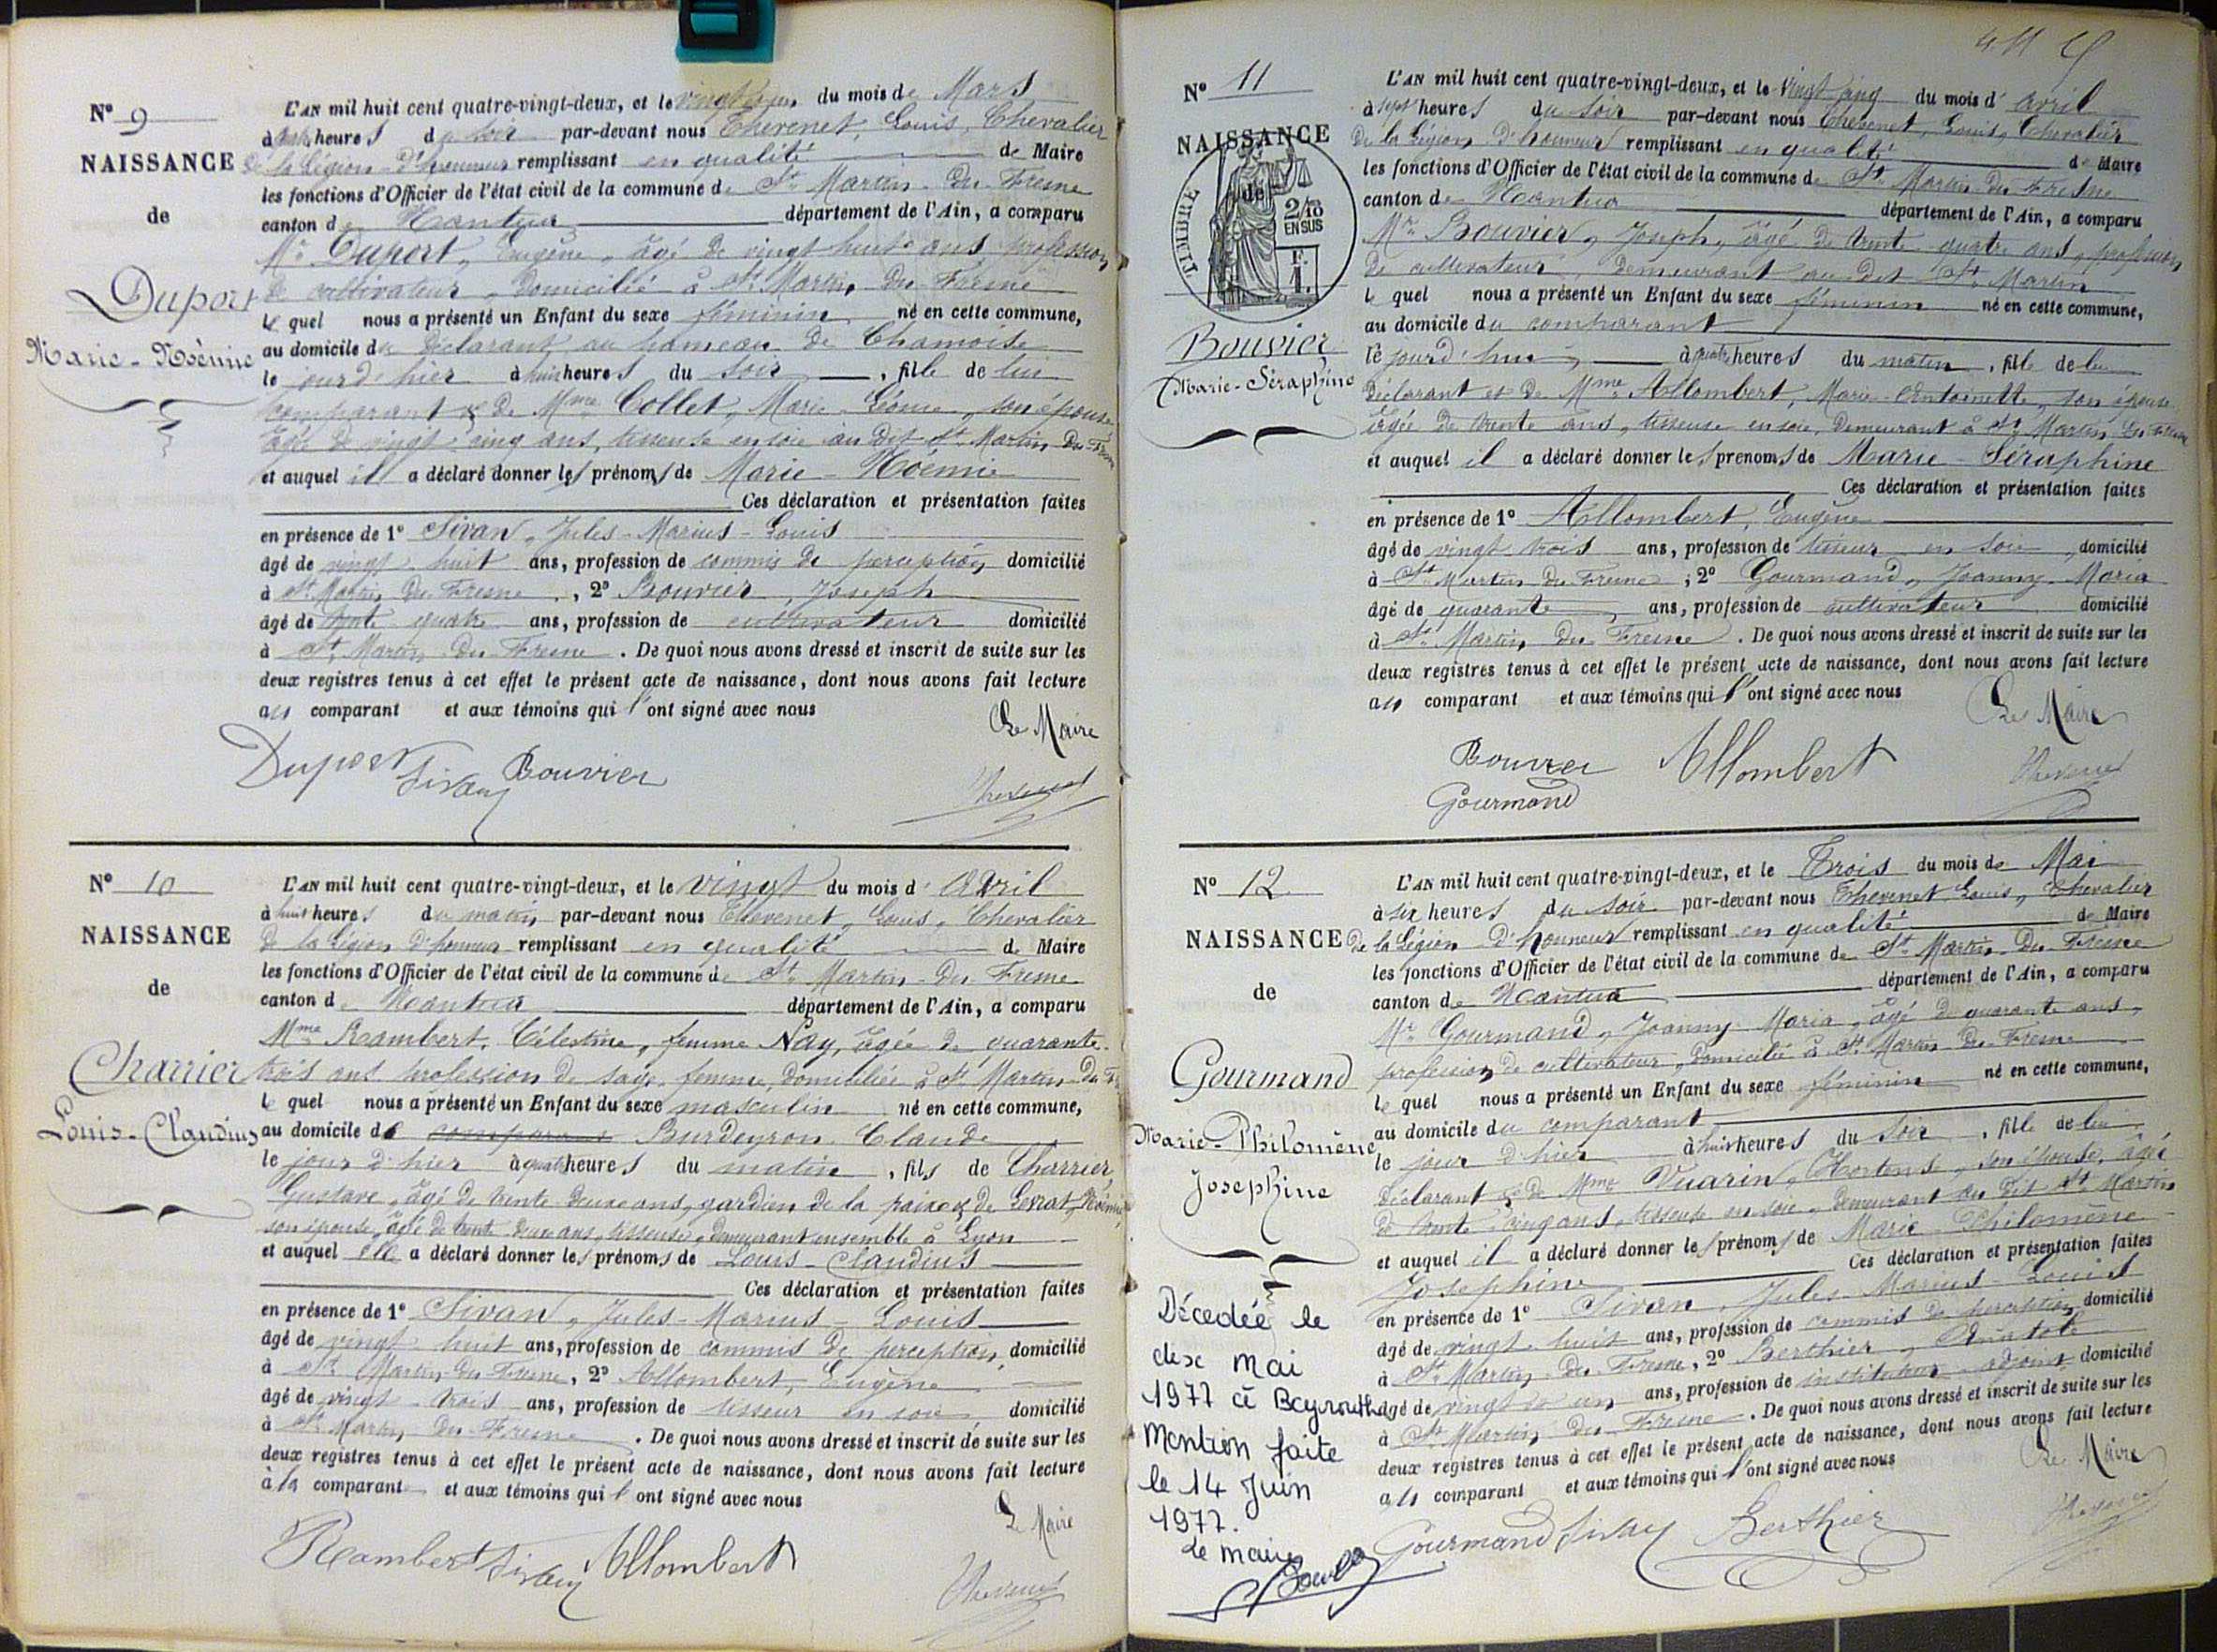 N° 9
NAISSANCE
de
Duport
Marie-Noémie
L'AN mil huit cent quatre-vingt-deux, et le du mois de Mars
à heures du soir par-devant nous Thevenet, Louis, Chevalier
de la Légion d'honneur remplissant en qualité de Maire
les fonctions d'Officier de l'état civil de la commune de St Martin-du-Fresne
canton de Nantua département de l'Ain, a comparu
Mr Duport, Eugène, âgé de vingt huit ans, profession
de cultivateur, domicilié à St Martin du Fresne
lequel nous a présenté un Enfant du sexe féminin né en cette commune,
au domicile du déclarant au hameau de Chamoise
le jour d'hier à huit heures du soir, fille de lui
comparant & de Mme Collet, Marie-Léonie, son épouse
âgée de vingt-cinq ans, tisseuse en soie au dit St Martin du Fresne
et auquel il a déclaré donner les prénoms de Marie-Noémie
Ces déclaration et présentation faites
en présence de 1° Sivan, Jules-Marius-Louis
âgé de vingt-huit ans, profession de commis de perception, domicilié
à St Martin du Fresne, 2° Bouvier, Joseph
âgé de trente quatre ans, profession de cultivateur domicilié
à St Martin du Fresne. De quoi nous avons dressé et inscrit de suite sur les
deux registres tenus à cet effet le présent acte de naissance, dont nous avons fait lecture
au comparant et aux témoins qui l'ont signé avec nous
Le Maire
Duport Sivan Bouvier Thevenet
N° 10
NAISSANCE
de
Charrier
Louis-Claudius
L'AN mil huit cent quatre-vingt-deux, et le vingt du mois d'Avril
à huit heures du matin, par-devant nous Thevenet, Louis, Chevalier
de la Légion d'honneur remplissant en qualité de Maire
les fonctions d'Officier de l'état civil de la commune de St Martin-du-Fresne
canton de Nantua département de l'Ain, a comparu
Mme Rambert, Célestine, femme Nay, âgée de quarante-
trois ans profession de sage-femme, domiciliée à St Martin-du-F
lequel nous a présenté un Enfant du sexe masculin né en cette commune,
au domicile de comparant Burdeyron Claude
le jour d'hier à quatre heures du matin, fils de Charrier,
Gustave, âgé de trente-deux ans, gardien de la paix & de Levrat, Noémie,
son épouse, âgée de trente deux ans, tisseuse, demeurant ensemble à Lyon
et auquel elle a déclaré donner les prénoms de Louis-Claudius
Ces déclaration et présentation faites
en présence de 1° Sivan, Jules-Marius-Louis
âgé de vingt-huit ans, profession de commis de perception, domicilié
à St Martin du Fresne, 2° Allombert, Eugène
âgé de vingt-trois ans, profession de tisseur en soie domicilié
à St Martin du Fresne. De quoi nous avons dressé et inscrit de suite sur les
deux registres tenus à cet effet le présent acte de naissance, dont nous avons fait lecture
à la comparant et aux témoins qui l'ont signé avec nous
Le Maire
Rambert Sivan Allombert Thevenet
N° 11
NAISSANCE
de
TIMBRE
2/10
EN SUS
F.
1.
Bouvier
Marie-Séraphine
L'AN mil huit cent quatre-vingt-deux, et le vingt cinq du mois d'avril
à sept heures du soir par-devant nous Thevenet, Louis, Chevalier
de la Légion d'honneur remplissant en qualité de Maire
les fonctions d'Officier de l'état civil de la commune de St Martin-du-Fresne
canton de Nantua département de l'Ain, a comparu
Mr Bouvier, Joseph, âgé de trente-quatre ans, profession
de cultivateur, demeurant au dit St Martin
lequel nous a présenté un Enfant du sexe féminin né en cette commune,
au domicile du comparant
le jourd'hui à quatre heures du matin, fille de lui
déclarant et de Mme Allombert, Marie-Antoinette, son épouse
âgée de trente ans, tisseuse en soie, demeurant à St Martin du Fresne
et auquel il a déclaré donner les prénoms de Marie-Séraphine
Ces déclaration et présentation faites
en présence de 1° Allombert, Eugène
âgé de vingt trois ans, profession de tisseur en soie, domicilié
à St Martin du Fresne; 2° Gourmand, Joanny-Maria
âgé de quarante ans, profession de cultivateur domicilié
à St Martin du Fresne. De quoi nous avons dressé et inscrit de suite sur les
deux registres tenus à cet effet le présent acte de naissance, dont nous avons fait lecture
au comparant et aux témoins qui l'ont signé avec nous
Le Maire
Bouvier Allombert Thevenet
Gourmand
N° 12
NAISSANCE
de
Gourmand
Marie-Philomène
Josephine
Décedée le
dix mai
1977 à Beyrouth
Mention faite
le 14 Juin
1977.
Le maire
L'AN mil huit cent quatre-vingt-deux, et le Trois du mois de Mai
à six heures du soir par-devant nous Thevenet, Louis, Chevalier
de la Légion d'honneur remplissant en qualité de Maire
les fonctions d'Officier de l'état civil de la commune de St Martin-du-Fresne
canton de Nantua département de l'Ain, a comparu
Mr Gourmand, Joanny-Maria, âgé de quarante ans,
profession de cultivateur, domicilié à St Martin-du-Fresne
lequel nous a présenté un Enfant du sexe féminin né en cette commune,
au domicile du comparant
le jour d'hier à huit heures du soir, fille de lui
déclarant & de Mme Vuarin, Hortense, son épouse, âgée
de trente-cinq ans, tisseuse en soie, demeurant au dit St Martin
et auquel il a déclaré donner les prénoms de Marie-Philomène-
Josephine Ces déclaration et présentation faites
en présence de 1° Sivan, Jules-Marius-Louis
âgé de vingt-huit ans, profession de commis de perception domicilié
à St Martin-du-Fresne, 2° Berthier, Anatole
âgé de vingt un ans, profession de instituteur-adjoint domicilié
à St Martin du Fresne. De quoi nous avons dressé et inscrit de suite sur les
deux registres tenus à cet effet le présent acte de naissance, dont nous avons fait lecture
au comparant et aux témoins qui l'ont signé avec nous
Le Maire
Gourmand Sivan Berthier Thevenet